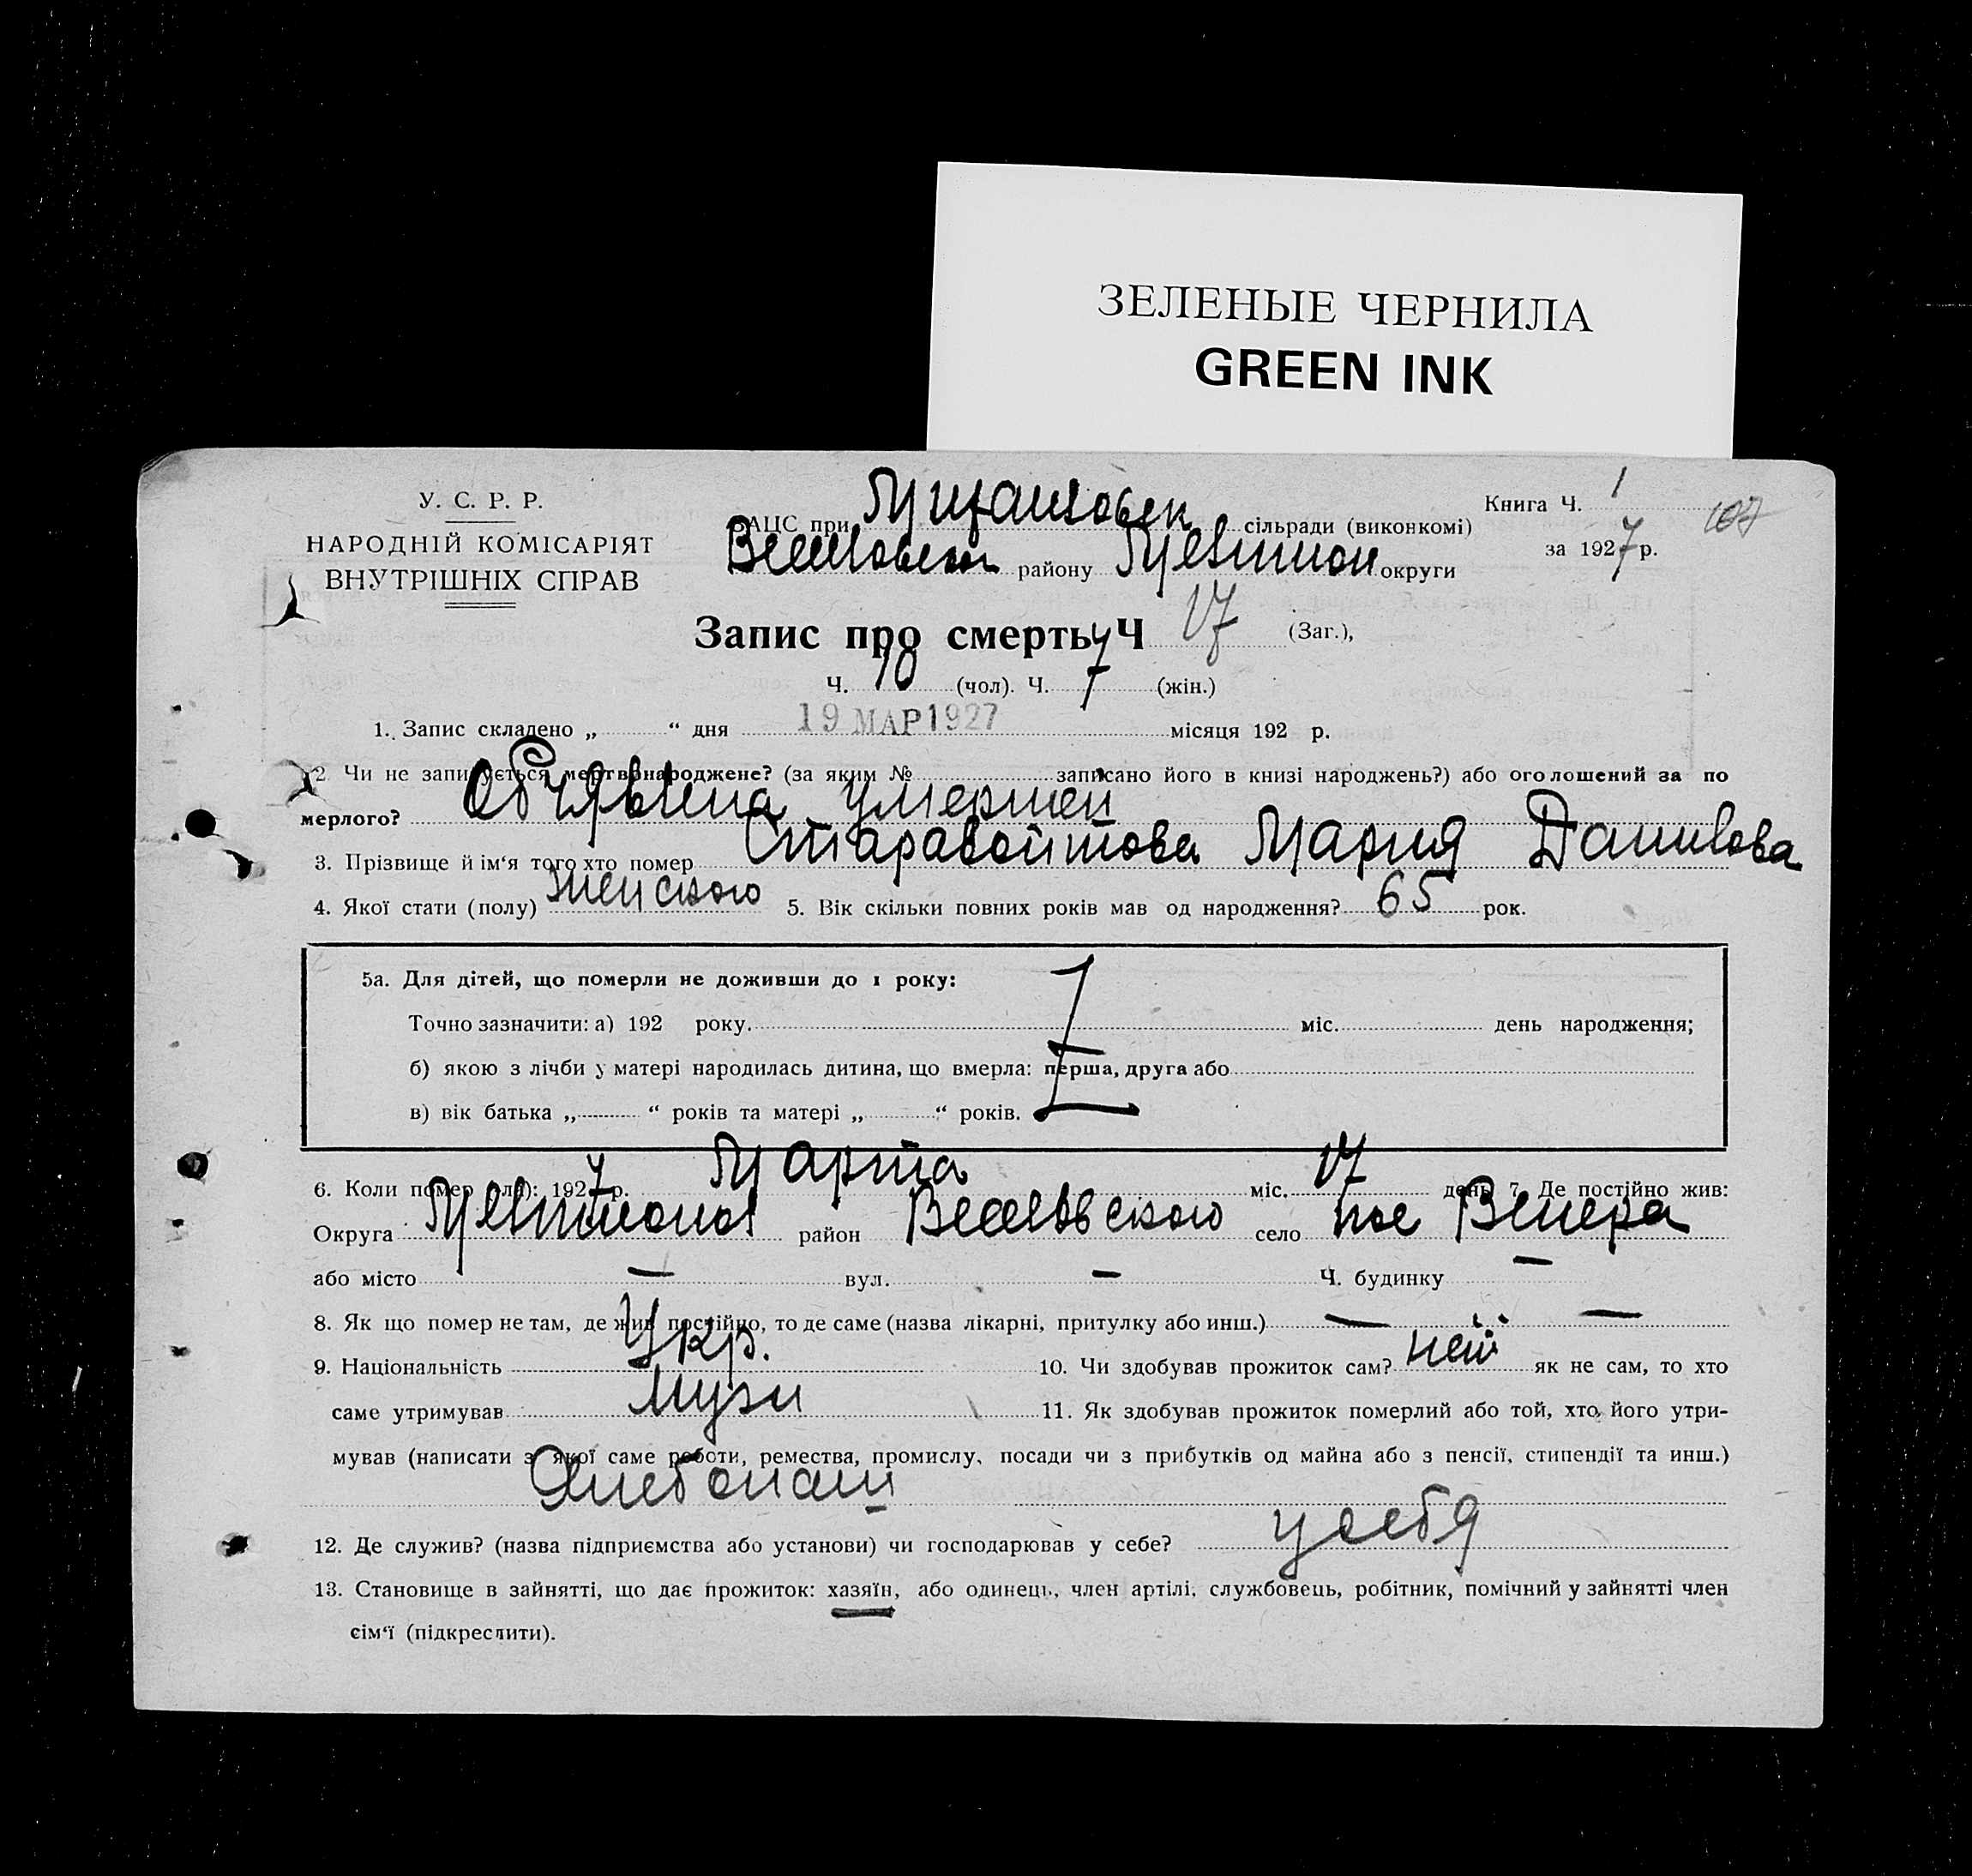 ЗЕЛЕНЫЕ ЧЕРНИЛА
GREEN INK
У. С. Р. Р.
НАРОДНІЙ КОМІСАРІЯТ
ВНУТРІШНІХ СПРАВ
ЗАЦС при сільради (виконкомі)
району округи
Книга Ч. 1
107
за 1927 р.
Запис про смерть Ч 17 (Заг.),
Ч. 10 (чол). Ч. 7 (жін.)
1. Запис складено „ “ дня 19 МАР 1927 місяця 192 р.
2. Чи не записується мертвонароджене? (за яким № записано його в книзі народжень?) або оголошений за по
мерлого?
3. Прізвище й ім'я того хто помер Старавойтова Мария Данилова
4. Якої стати (полу) женского 5. Вік скільки повних років мав од народження? 65 рок.
5а. Для дітей, що померли не доживши до 1 року:
Точно зазначити: а) 192 року. міс. день народження;
б) якою з лічби у матері народилась дитина, що вмерла: перша, друга або
в) вік батька „ “ років та матері „ “ років.
6. Коли помер (ла): 1927 р. Марта міс. 17 день 7. Де постійно жив:
Округа район село пос Венера
або місто — вул. — Ч. будинку —
8. Як що помер не там, де жив постійно, то де саме (назва лікарні, притулку або инш.) — —
9. Національність Укр. 10. Чи здобував прожиток сам? нет як не сам, то хто
саме утримував муж 11. Як здобував прожиток померлий або той, хто його утри-
мував (написати з якої саме роботи, ремества, промислу, посади чи з прибутків од майна або з пенсії, стипендії та инш.)
Хлебопаш
12. Де служив? (назва підприємства або установи) чи господарював у себе? у себя
13. Становище в зайнятті, що дає прожиток: хазяїн, або одинець, член артілі, службовець, робітник, помічний у зайнятті член
сім'ї (підкреслити).